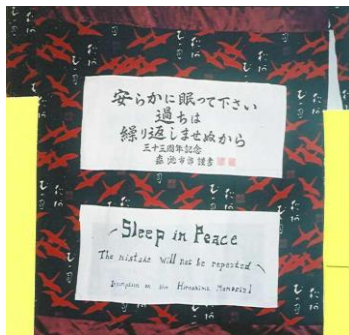 安らかに眠って下さい
過ちは
繰り返しませぬから
三十三周年記念
Sleep in Peace
The mistake will not be repeated
Hiroshima Memorial